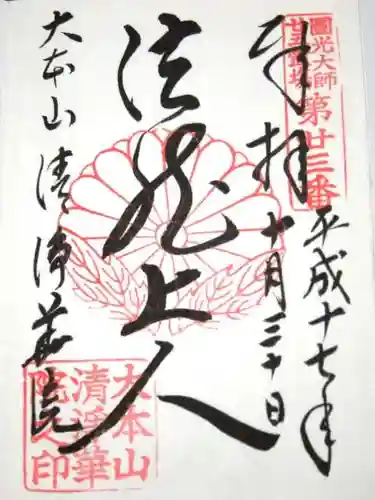 圓光大師
廿五霊場
第廿三番
奉拝
平成十七年
十月三十日
法然上人
大本山 清浄華院
大本山
清浄華
院之印